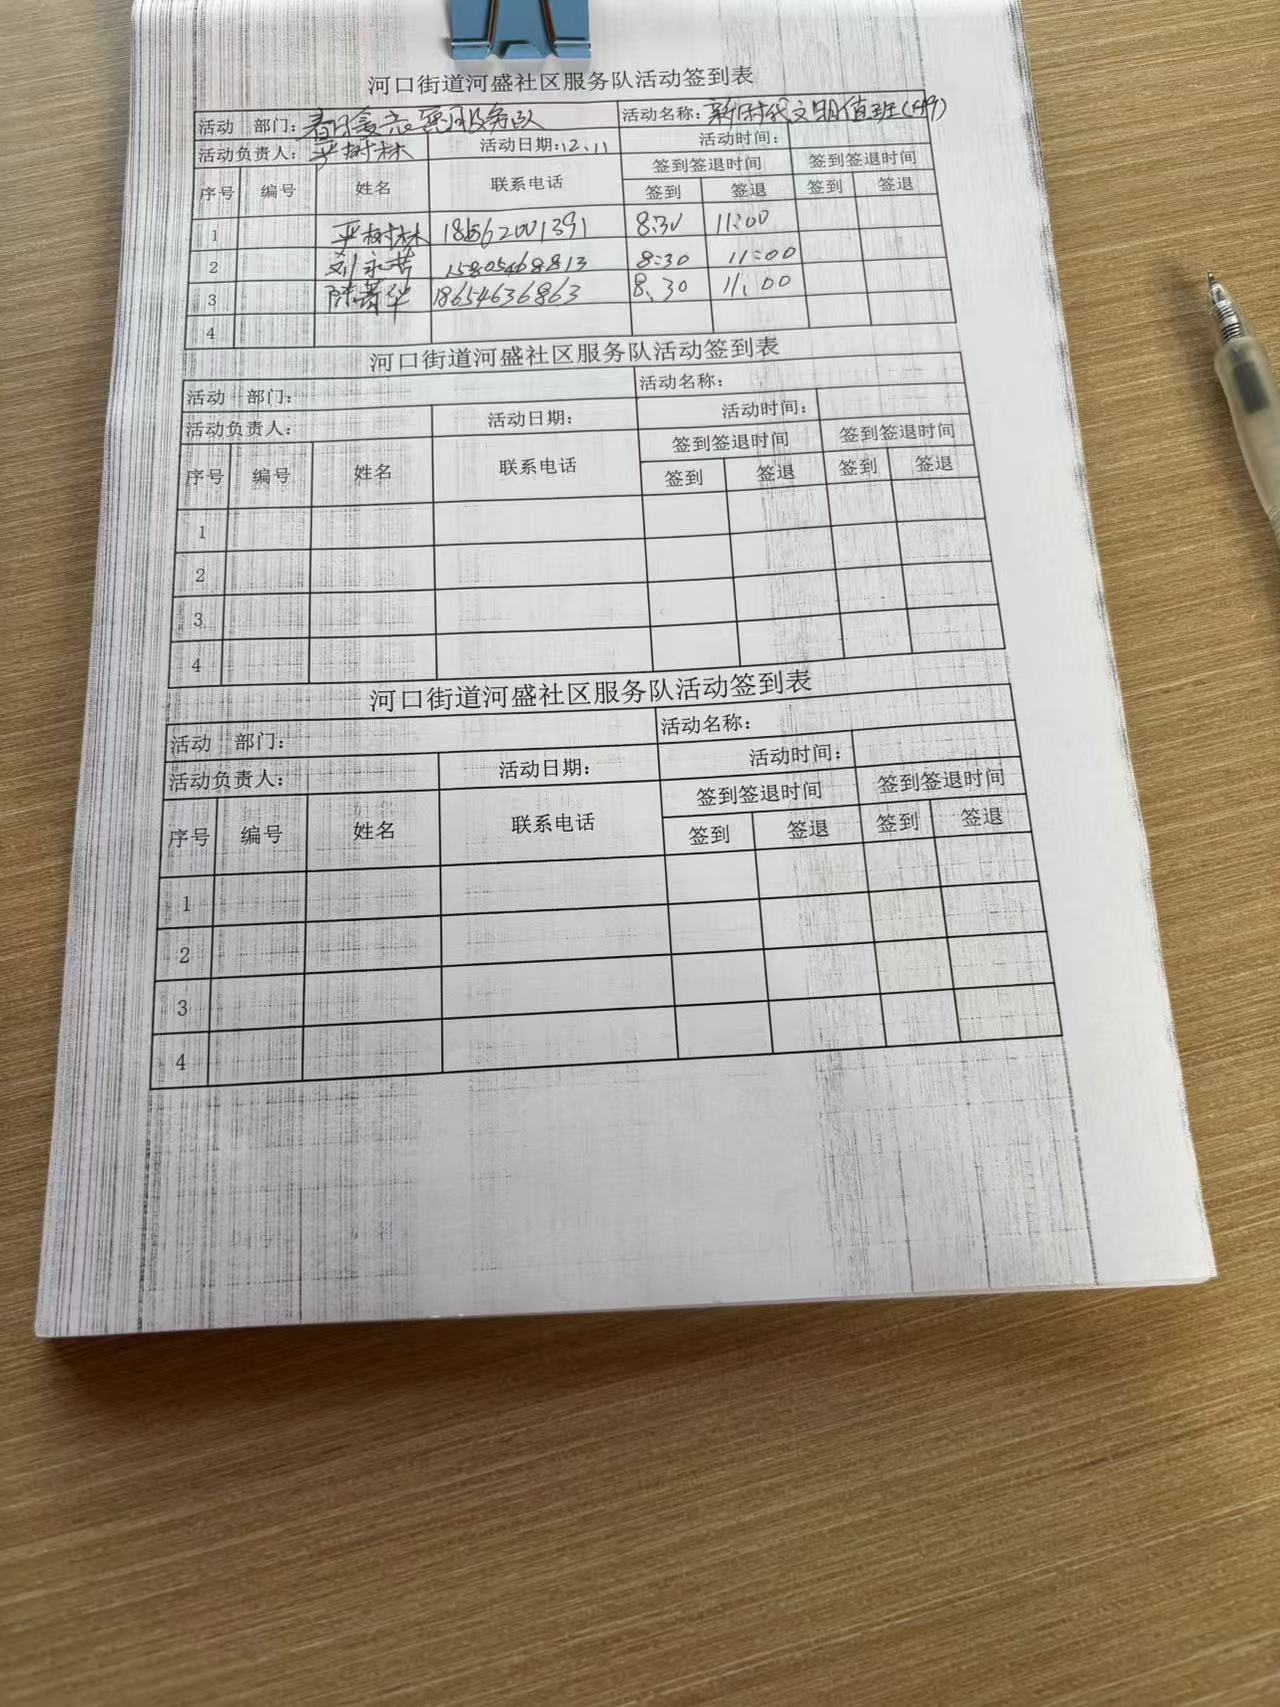 河口街道河盛社区服务队活动签到表
活动 部门: 服务队 活动名称: 新时代文明值班
活动负责人: 严树林 活动日期:12.11 活动时间:
序号 编号 姓名 联系电话 签到签退时间 签到签退时间
签到 签退 签到 签退
1 严树林 18562001391 8:30 11:00
2 刘永芳 15805468813 8:30 11:00
3 陈菁华 18654636863 8.30 11:00
4
河口街道河盛社区服务队活动签到表
活动 部门: 活动名称:
活动负责人: 活动日期: 活动时间:
序号 编号 姓名 联系电话 签到签退时间 签到签退时间
签到 签退 签到 签退
1
2
3
4
河口街道河盛社区服务队活动签到表
活动 部门: 活动名称:
活动负责人: 活动日期: 活动时间:
序号 编号 姓名 联系电话 签到签退时间 签到签退时间
签到 签退 签到 签退
1
2
3
4